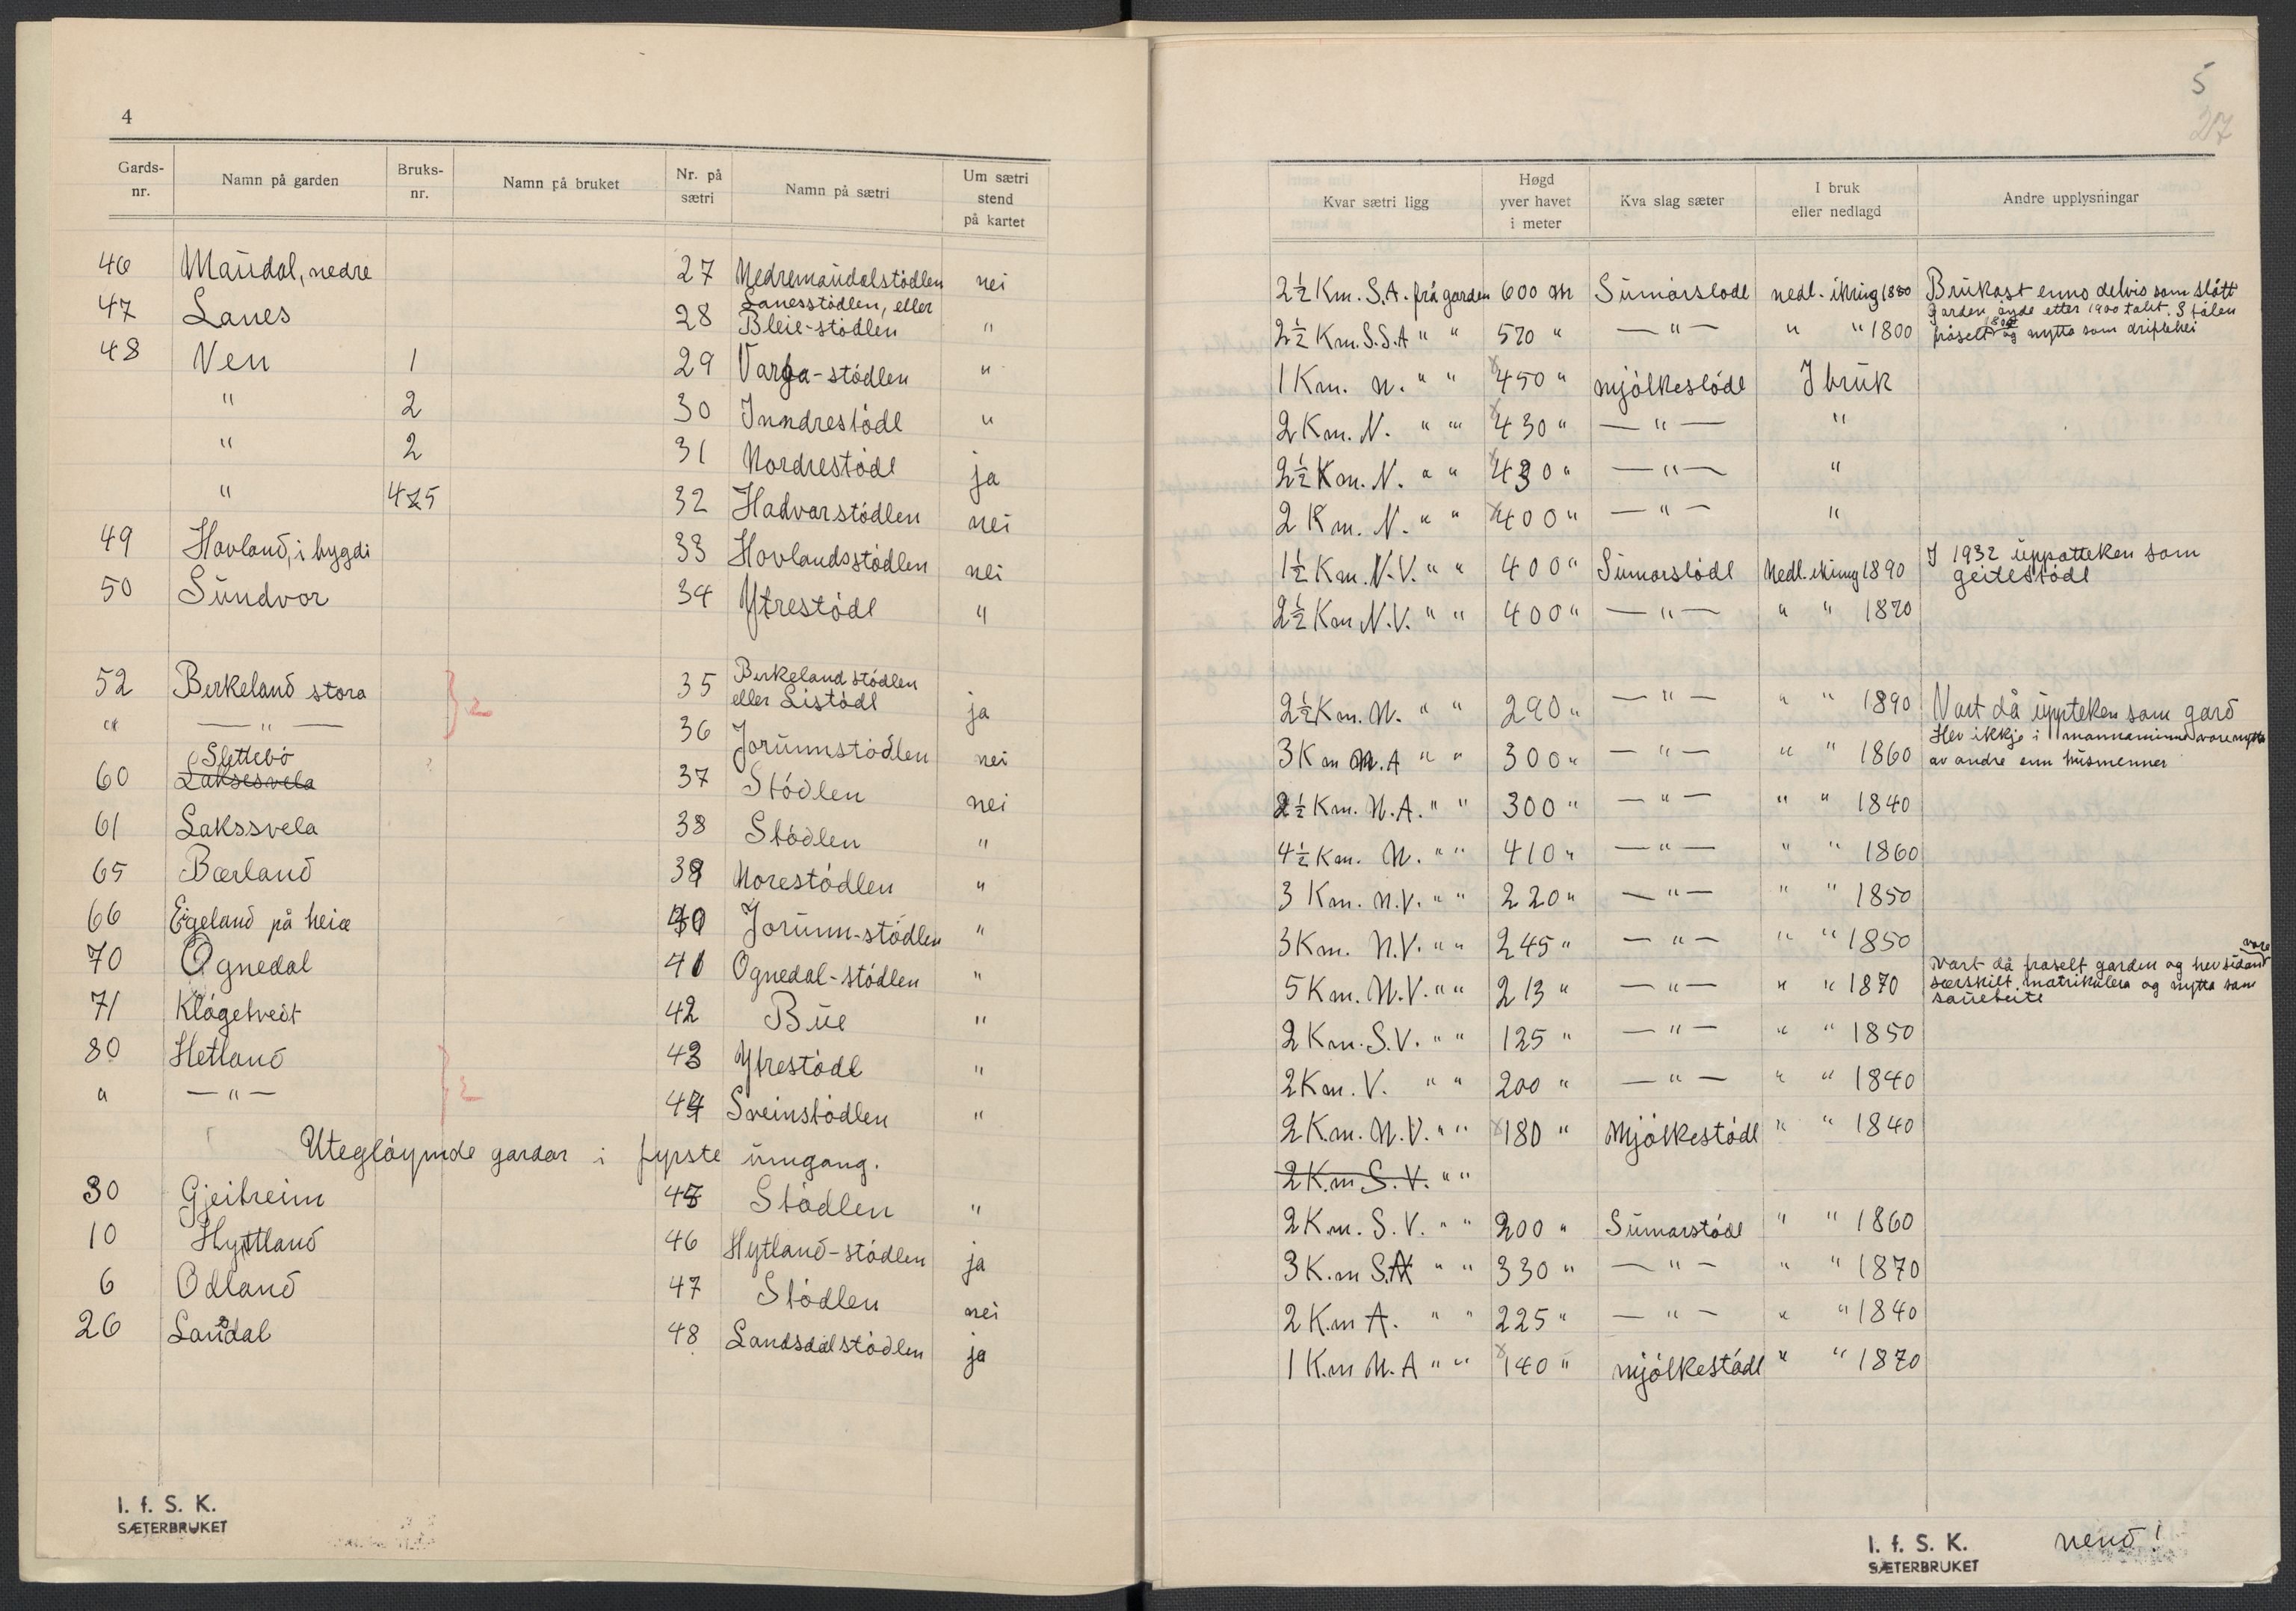 4
Gards-nr. Namn på garden Bruks-nr. Namn på bruket Nr. på sætri Namn på sætri Um sætri stend på kartet
46 Maudal, nedre 27 Nedremaudalstödlen nei
47 Lanes 28 Lanesstödlen, eller Bleie-stödlen "
48 Ven 1 29 Varga-stödlen "
" 2 30 Inndrestödl "
" 2 31 Nordrestödl ja
" 4 5 32 Hadvarstödlen nei
49 Hovland, i bygdi 33 Hovlandsstödlen nei
50 Sundvor 34 Ytrestödl "
52 Berkeland stora } 2 35 Berkelandstödlen eller Listödl ja
" — " — 36 Jorunnstödlen nei
60 Slettebö Laksesvela 37 Stödlen nei
61 Lakssvela 38 Stödlen "
65 Bærland 39 Norestödlen "
66 Eigeland på heia 40 Jorunn-stödlen "
70 Ognedal 41 Ognedal-stödlen "
71 Klögetvedt 42 Bue "
80 Hetland } 2 43 Ytrestödl "
" — " — 44 Sveinstödlen "
Utegløymde gardar i fyrste umgang.
30 Gjeitreim 45 Stödlen "
10 Hytland 46 Hytland-stödlen ja
6 Odland 47 Stödlen nei
26 Landsdal 48 Landsdalstödlen ja
I. f. S. K.
SÆTERBRUKET
5
27
Kvar sætri ligg Høgd yver havet i meter Kva slag sæter I bruk eller nedlagd Andre upplysningar
2½ Km. S.A. frå garden 600 m Sumarstödl nedl. ikring 1880 Brukast enno delvis som slått
2½ Km. S.S.A " " 570 " — " — " " 1800 Garden øyde etter 1900 talet. Stölen fråselt og nytta som driftehei
1 Km. N. " " 450 " mjölkestödl I bruk
2 Km. N. " " 430 " — " — "
2½ Km. N. " " 430 " — " — "
2 Km. N. " " 400 " — " — "
1½ Km. N.V. " " 400 " Sumarstödl Nedl. ikring 1890 I 1932 uppatteken som geitestödl
2½ Km N.V. " " 400 " — " — " " 1870
2½ Km. N. " " 290 " — " — " " 1890 Vart då uppteken som gard
3 Km N.A " " 300 " — " — " " 1860 Hev ikkje i mannaminne vore nytta av andre enn husmenner
2½ Km. N.A. " " 300 " — " — " " 1840
4½ Km. N. " " 410 " — " — " " 1860
3 Km. N.V. " " 220 " — " — " " 1850
3 Km. N.V. " " 245 " — " — " " 1850
5 Km. N.V. " " 213 " — " — " " 1870 Vart då fraselt garden og hev sidan vore særskilt matrikulera og nytta som sauebeite
2 Km. S.V. " " 125 " — " — " " 1850
2 Km. V. " " 200 " — " — " " 1840
2 Km. N.V. " " 180 " Mjölkestödl " " 1840
2 K.m S.V. " "
2 K.m. S.V. " " 200 " Sumarstödl " " 1860
3 K.m S.A " " 330 " — " — " " 1870
2 K.m A. " " 225 " — " — " " 1840
1 K.m N.A " " 140 " mjölkestödl " " 1870
I. f. S. K.
SÆTERBRUKET
vend!